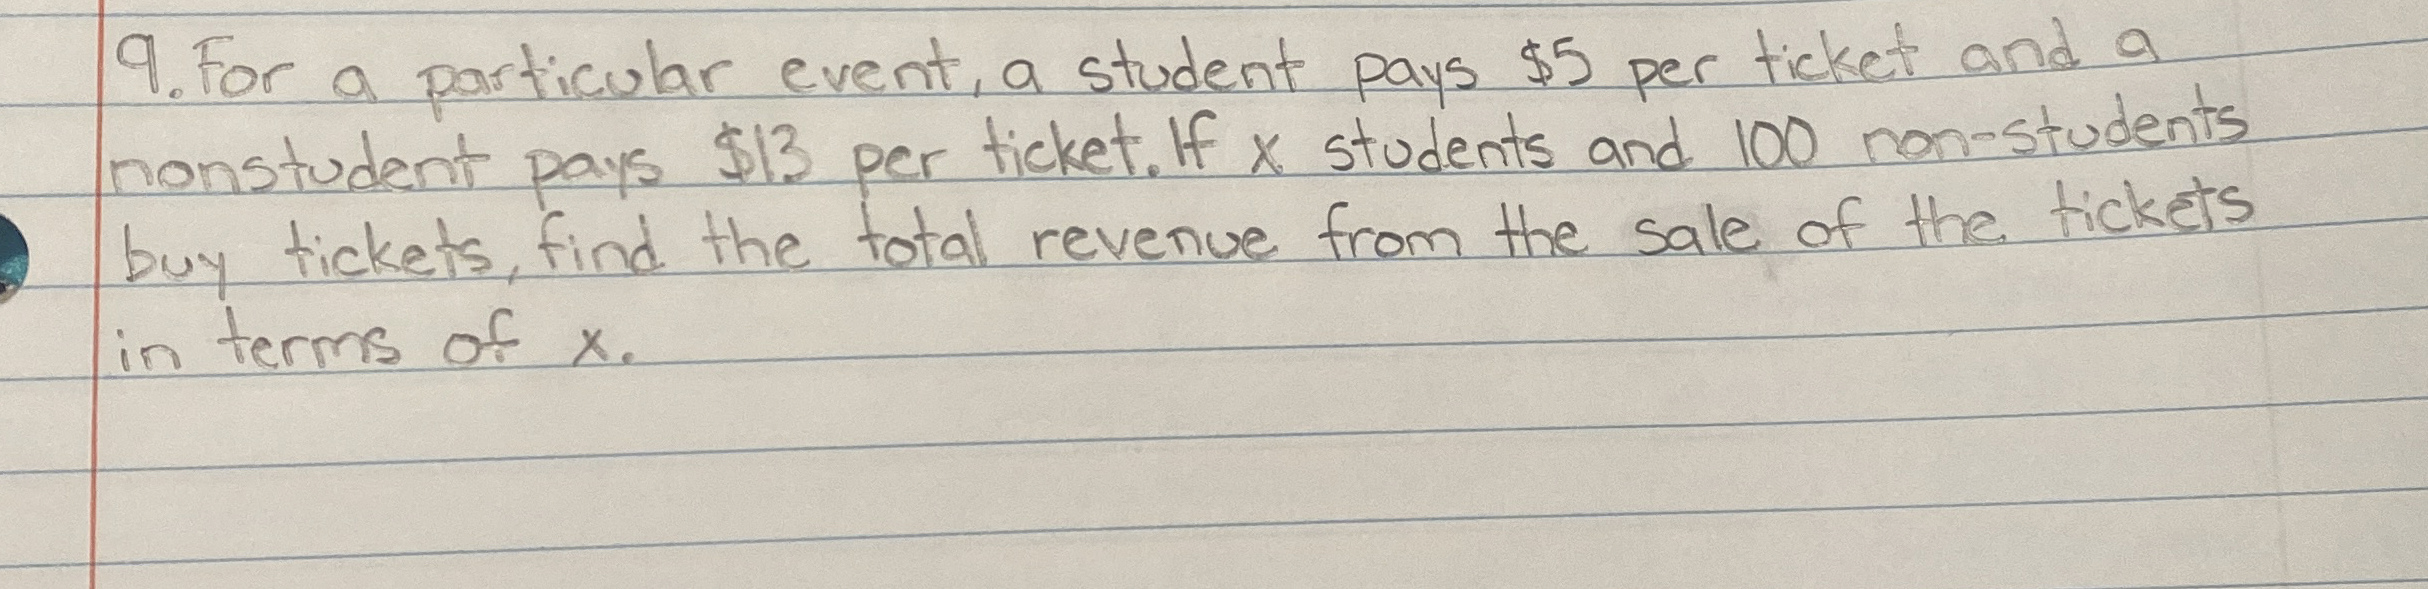 9. For a particular event, a student pays $5 per ticket and a
nonstudent pays $13 per ticket. If x students and 100 non-students
buy tickets, find the total revenue from the sale of the tickets
in terms of x.